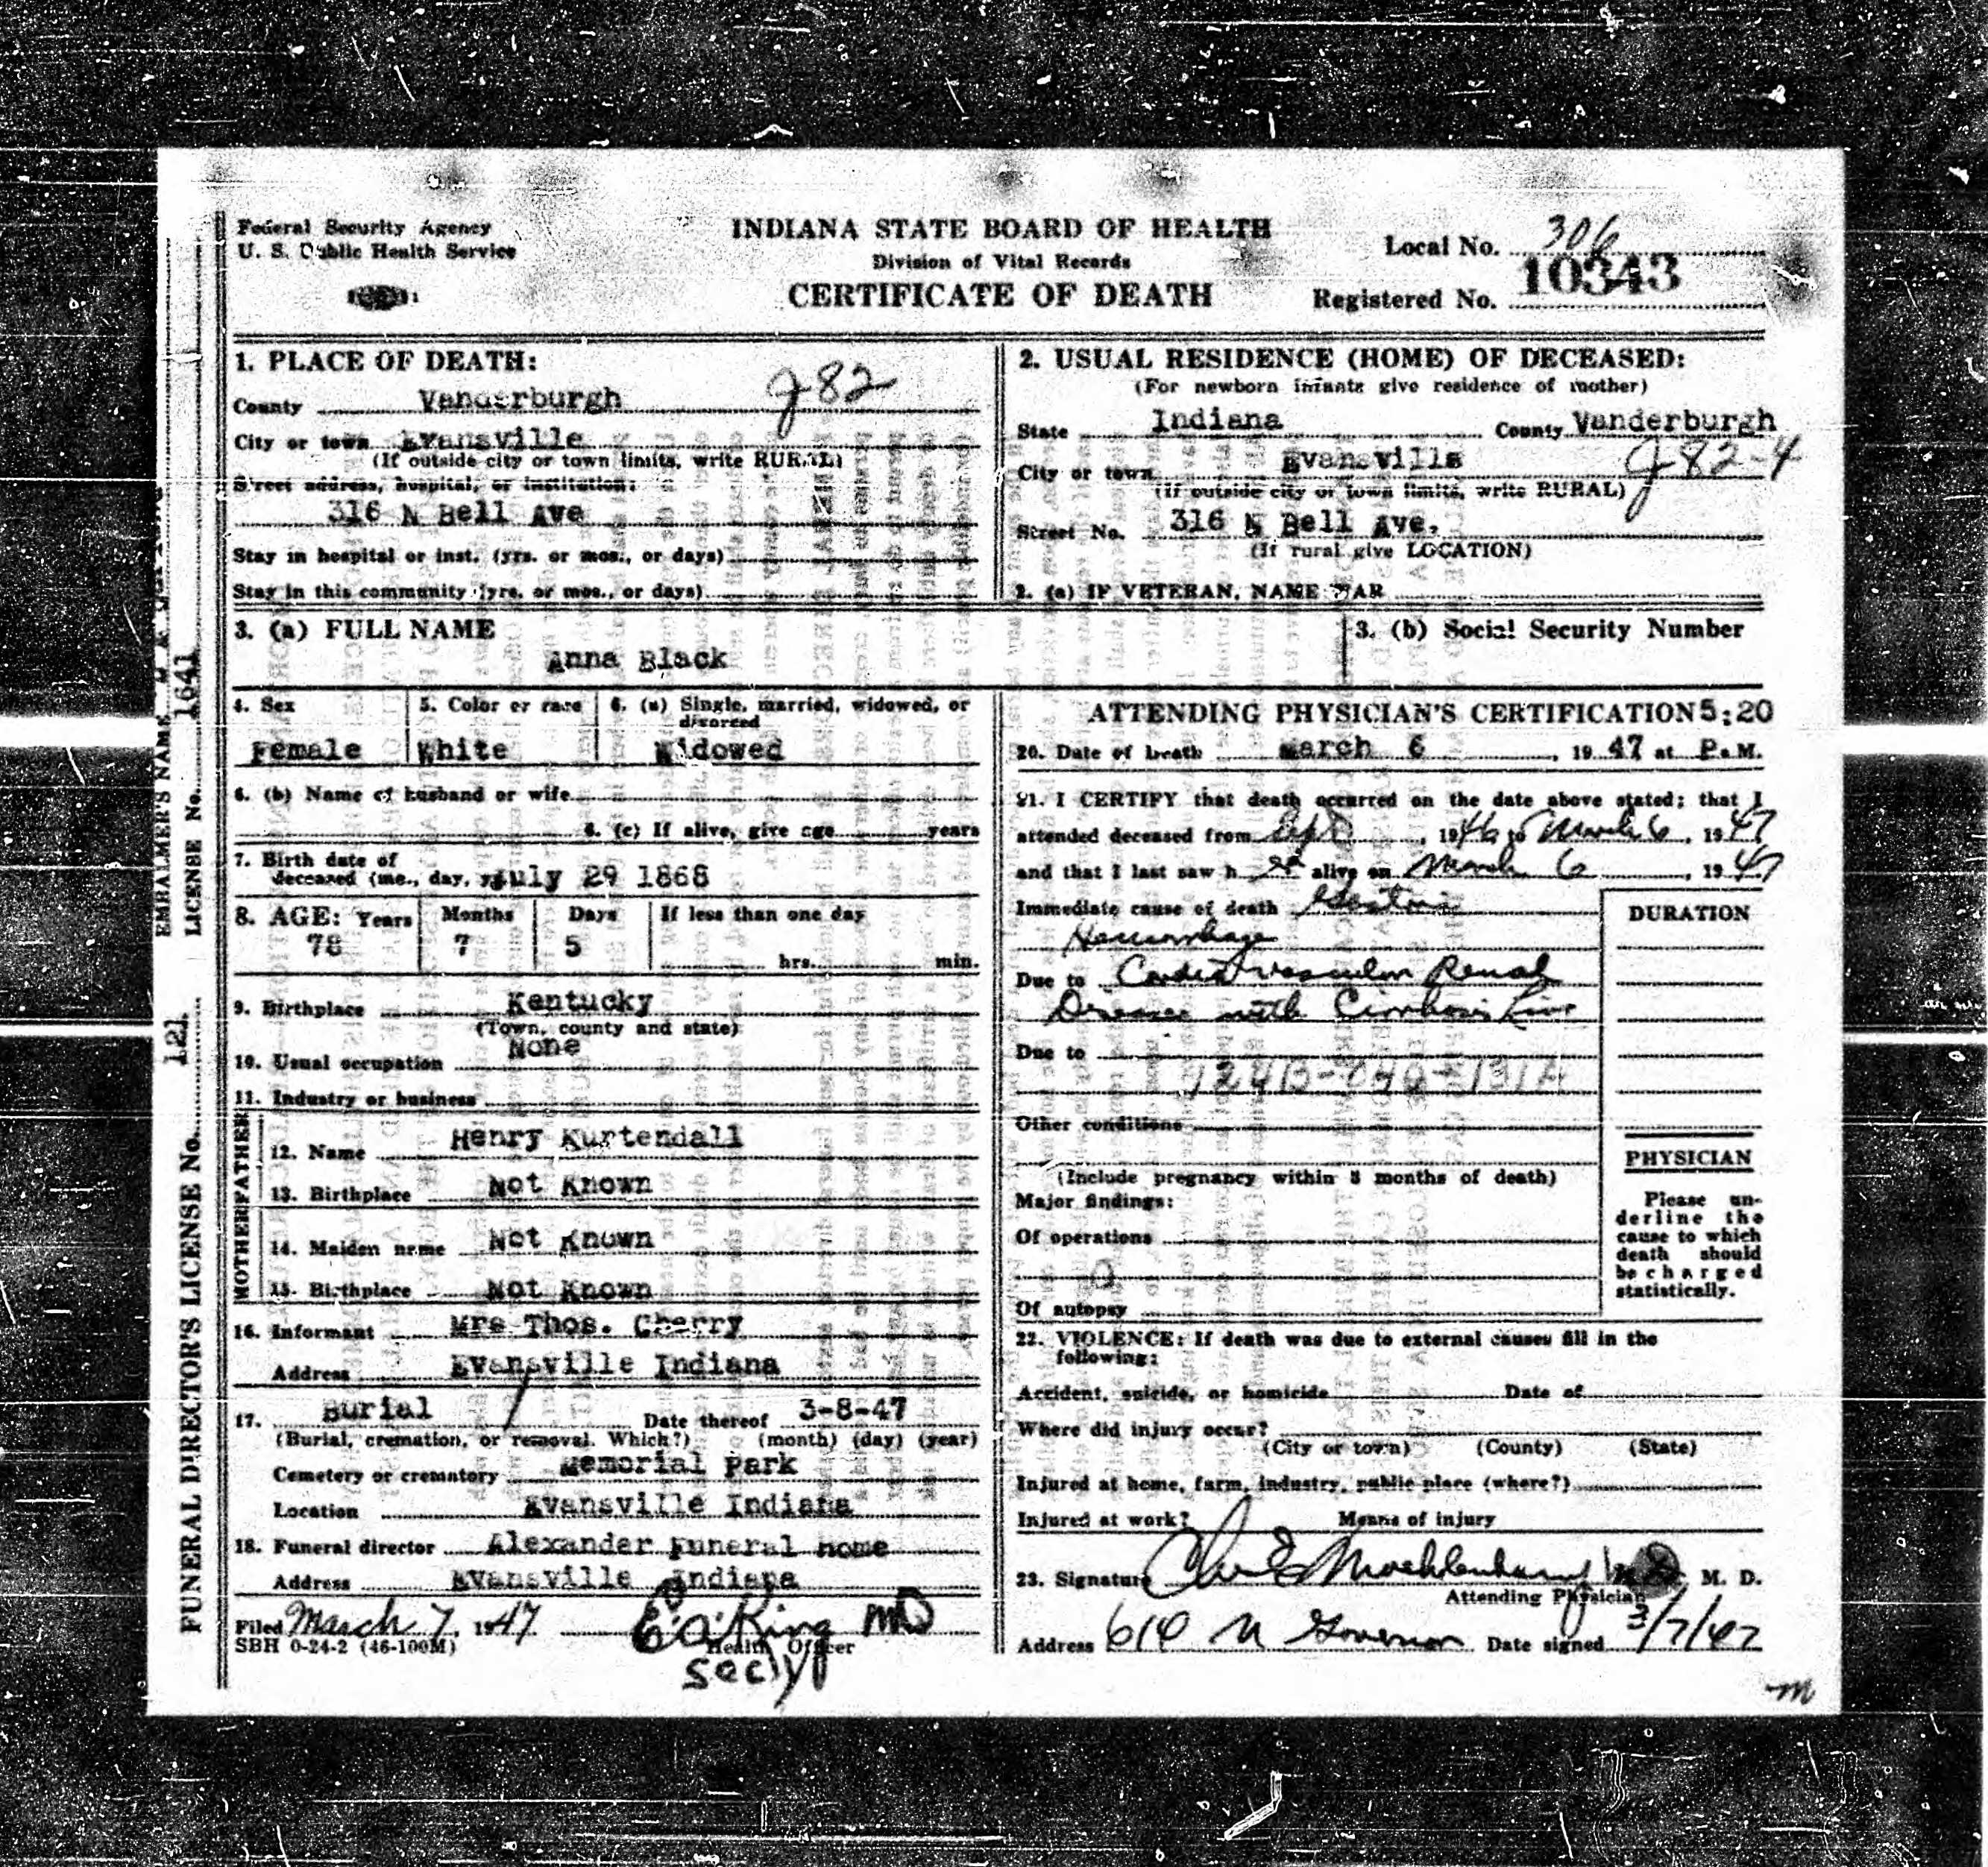 Federal Security Agency
U. S. Public Health Service
INDIANA STATE BOARD OF HEALTH
Division of Vital Records
CERTIFICATE OF DEATH
Local No. 306
Registered No. 10343
1. PLACE OF DEATH:
County Vanderburgh 982
City or town Evansville
(If outside city or town limits, write RURAL)
Street address, hospital, or institution:
316 N Bell Ave
Stay in hospital or inst. (yrs. or mos., or days)
Stay in this community (yrs. or mos., or days)
2. USUAL RESIDENCE (HOME) OF DECEASED:
(For newborn infants give residence of mother)
State Indiana County Vanderburgh
City or town Evansville 982-4
(If outside city or town limits, write RURAL)
Street No. 316 N Bell Ave.
(If rural give LOCATION)
2. (a) IF VETERAN, NAME WAR
3. (a) FULL NAME
Anna Black
3. (b) Social Security Number
4. Sex
Female
5. Color or race
White
6. (a) Single, married, widowed, or
divorced
Widowed
6. (b) Name of husband or wife
6. (c) If alive, give age years
7. Birth date of
deceased (mo., day, July 29 1868
8. AGE: Years Months Days If less than one day
78 7 5 hrs. min.
9. Birthplace Kentucky
(Town, county and state)
10. Usual occupation None
11. Industry or business
FATHER
12. Name Henry Kurtendall
13. Birthplace Not Known
MOTHER
14. Maiden name Not Known
15. Birthplace Not Known
16. Informant Mrs Thos. Cherry
Address Evansville Indiana
17. Burial Date thereof 3-8-47
(Burial, cremation, or removal. Which?) (month) (day) (year)
Cemetery or crematory Memorial Park
Location Evansville Indiana
18. Funeral director Alexander Funeral Home
Address Evansville Indiana
Filed March 7, 1947 E. A. King MD
SBH 0-24-2 (46-100M) Health Officer
Sec'y
ATTENDING PHYSICIAN'S CERTIFICATION 5:20
20. Date of Death March 6, 1947 at P.M.
21. I CERTIFY that death occurred on the date above stated; that I
attended deceased from Sept, 1946 to March 6, 1947
and that I last saw her alive on March 6, 1947
Immediate cause of death
Hemorrhage
Due to Cardio vascular Renal
Disease with Cirrhosis Liver
Due to
Other conditions
(Include pregnancy within 3 months of death)
Major findings:
Of operations
Of autopsy
DURATION
PHYSICIAN
Please un-
derline the
cause to which
death should
be charged
statistically.
22. VIOLENCE: If death was due to external causes fill in the
following:
Accident, suicide, or homicide Date of
Where did injury occur?
(City or town) (County) (State)
Injured at home, farm, industry, public place (where?)
Injured at work? Means of injury
23. Signature M. D.
Attending Physician
Address 610 N Governor Date signed 3/7/47
m
EMBALMER'S NAME
LICENSE No. 1641
FUNERAL DIRECTOR'S LICENSE No. 121